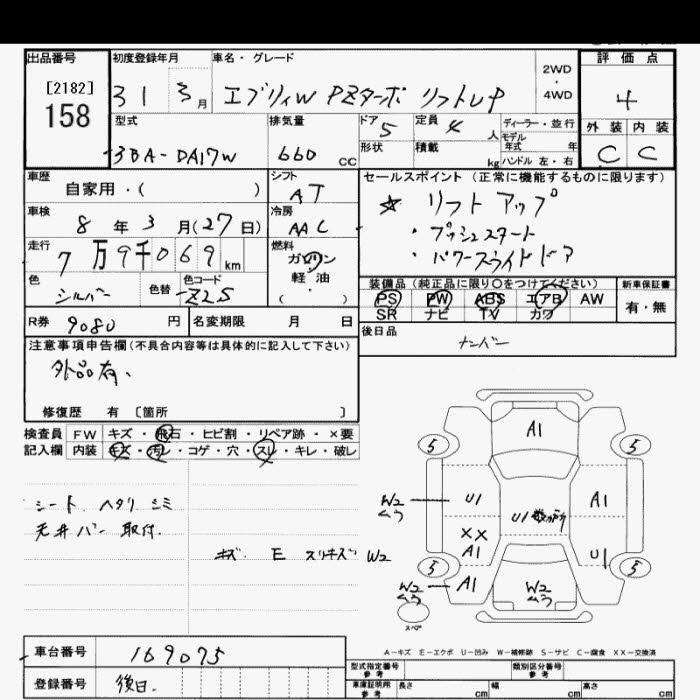 出品番号
[2182]
158
初度登録年月
31 3月
車名・グレード
エブリィW PZターボ リフトUP
2WD
・
4WD
評価点
4
外装 内装
C C
型式
3BA-DA17W
排気量
660 cc
ドア
5
定員
4 人
形状
積載
kg
ディーラー・並行
モデル
年式 年
ハンドル 左・右
車歴
自家用・( )
シフト
AT
車検
8年3月(27日)
冷房
AAC
走行
7万9千069km
燃料
ガソリン
軽油
( )
色
シルバー
色替
色コード
Z2S
R券 9080円
名変期限 月 日
セールスポイント (正常に機能するものに限ります)
☆ リフトアップ
・プッシュスタート
・パワースライドドア
装備品 (純正品に限り〇をつけてください)
PS PW ABS エアB AW
SR ナビ TV カワ
新車保証書
有・無
後日品
ナンバー
注意事項申告欄(不具合内容等は具体的に記入して下さい)
外品有、
修復歴 有 〔箇所 〕
検査員
記入欄
FW キズ・飛石・ヒビ割・リペア跡・×要
内装 キズ・汚レ・コゲ・穴・スレ・キレ・破レ
シート ヘタリ シミ
天井バー 取付.
キズ E スリキズ W2
A1
5 5
W2
ムラ
U1
U1
A1
XX
A1
U1
5 5
W2
ムラ
A1
W2
ムラ
スペア
A-キズ E-エクボ U-凹み W-補修跡 S-サビ C-腐食 XX-交換済
車台番号 169075
登録番号 後日.
型式指定番号
参考
類別区分番号
参考
車庫証明用
参考
長さ cm
幅 cm
高さ cm